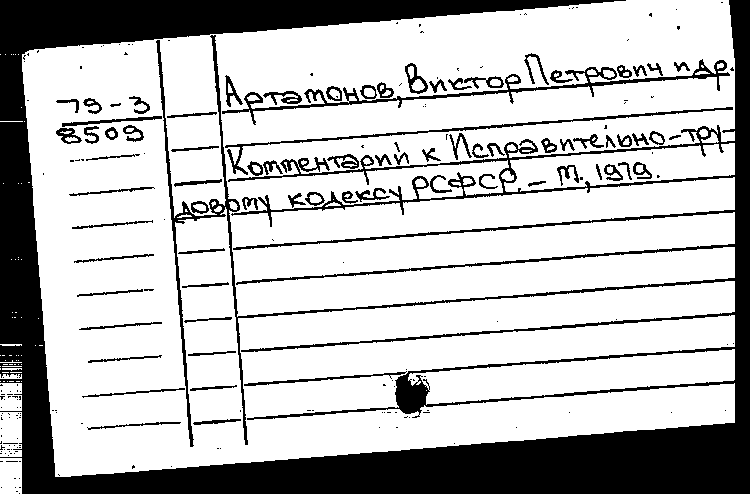 79-3
8509
Артамонов, Виктор Петрович и др.
Комментарий к Исправительно-тру-
довому кодексу РСФСР. – М., 1979.